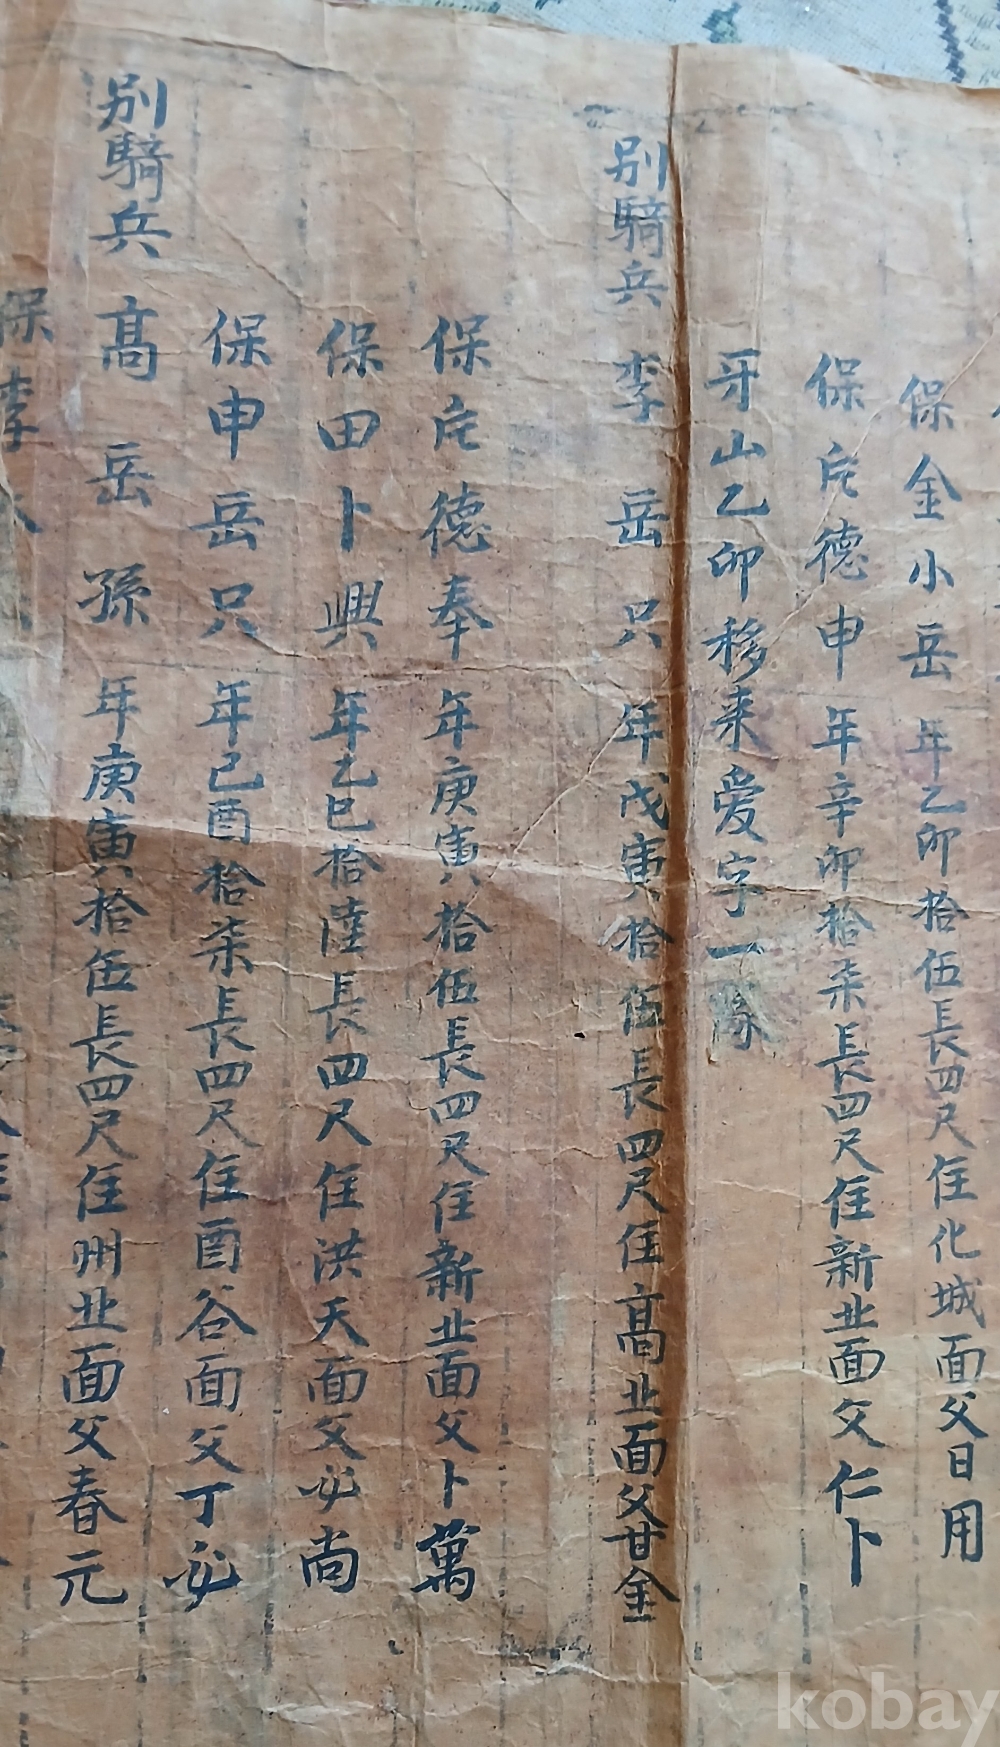 保金小岳年乙卯拾伍長四尺住化城面父日用
保德申年辛卯拾柒長四尺住新北面父仁卜
牙山乙卯移来爱字一隊
别騎兵李岳只年戊寅拾伍長四尺住高北面父甘金
保德奉年庚寅拾伍長四尺住新北面父卜萬
保田卜興年乙巳拾陸長四尺住洪天面父必尚
保申岳只年己酉拾柒長四尺住酉谷面父丁必
别騎兵高岳孫年庚寅拾伍長四尺住州北面父春元
保李
kobay